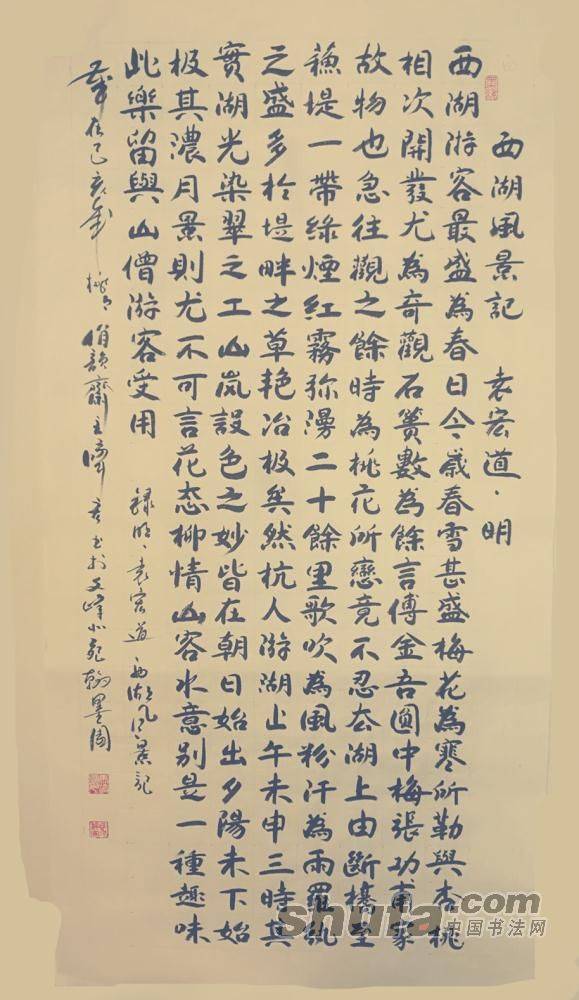 西湖風景記 袁宏道·明
西湖游客最盛為春日今歲春雪甚盛梅花為寒所勒與杏桃
相次開發尤為奇觀石簣數為餘言傅金吾園中梅張功甫家
故物也急往觀之餘時為桃花所戀竟不忍去湖上由斷橋至
蘇堤一帶綠煙紅霧弥漫二十餘里歌吹為風粉汗為雨羅紈
之盛多於堤畔之草艳冶极矣然杭人游湖止午未申三時其
實湖光染翠之工山岚設色之妙皆在朝日始出夕陽未下始
极其濃月景則尤不可言花态柳情山容水意别是一種趣味
此樂留與山僧游客受用
録明·袁宏道西湖風景記
歲在己亥年
俏韵齋主
書於文峰小苑翰墨園
shufa.com
中国书法网